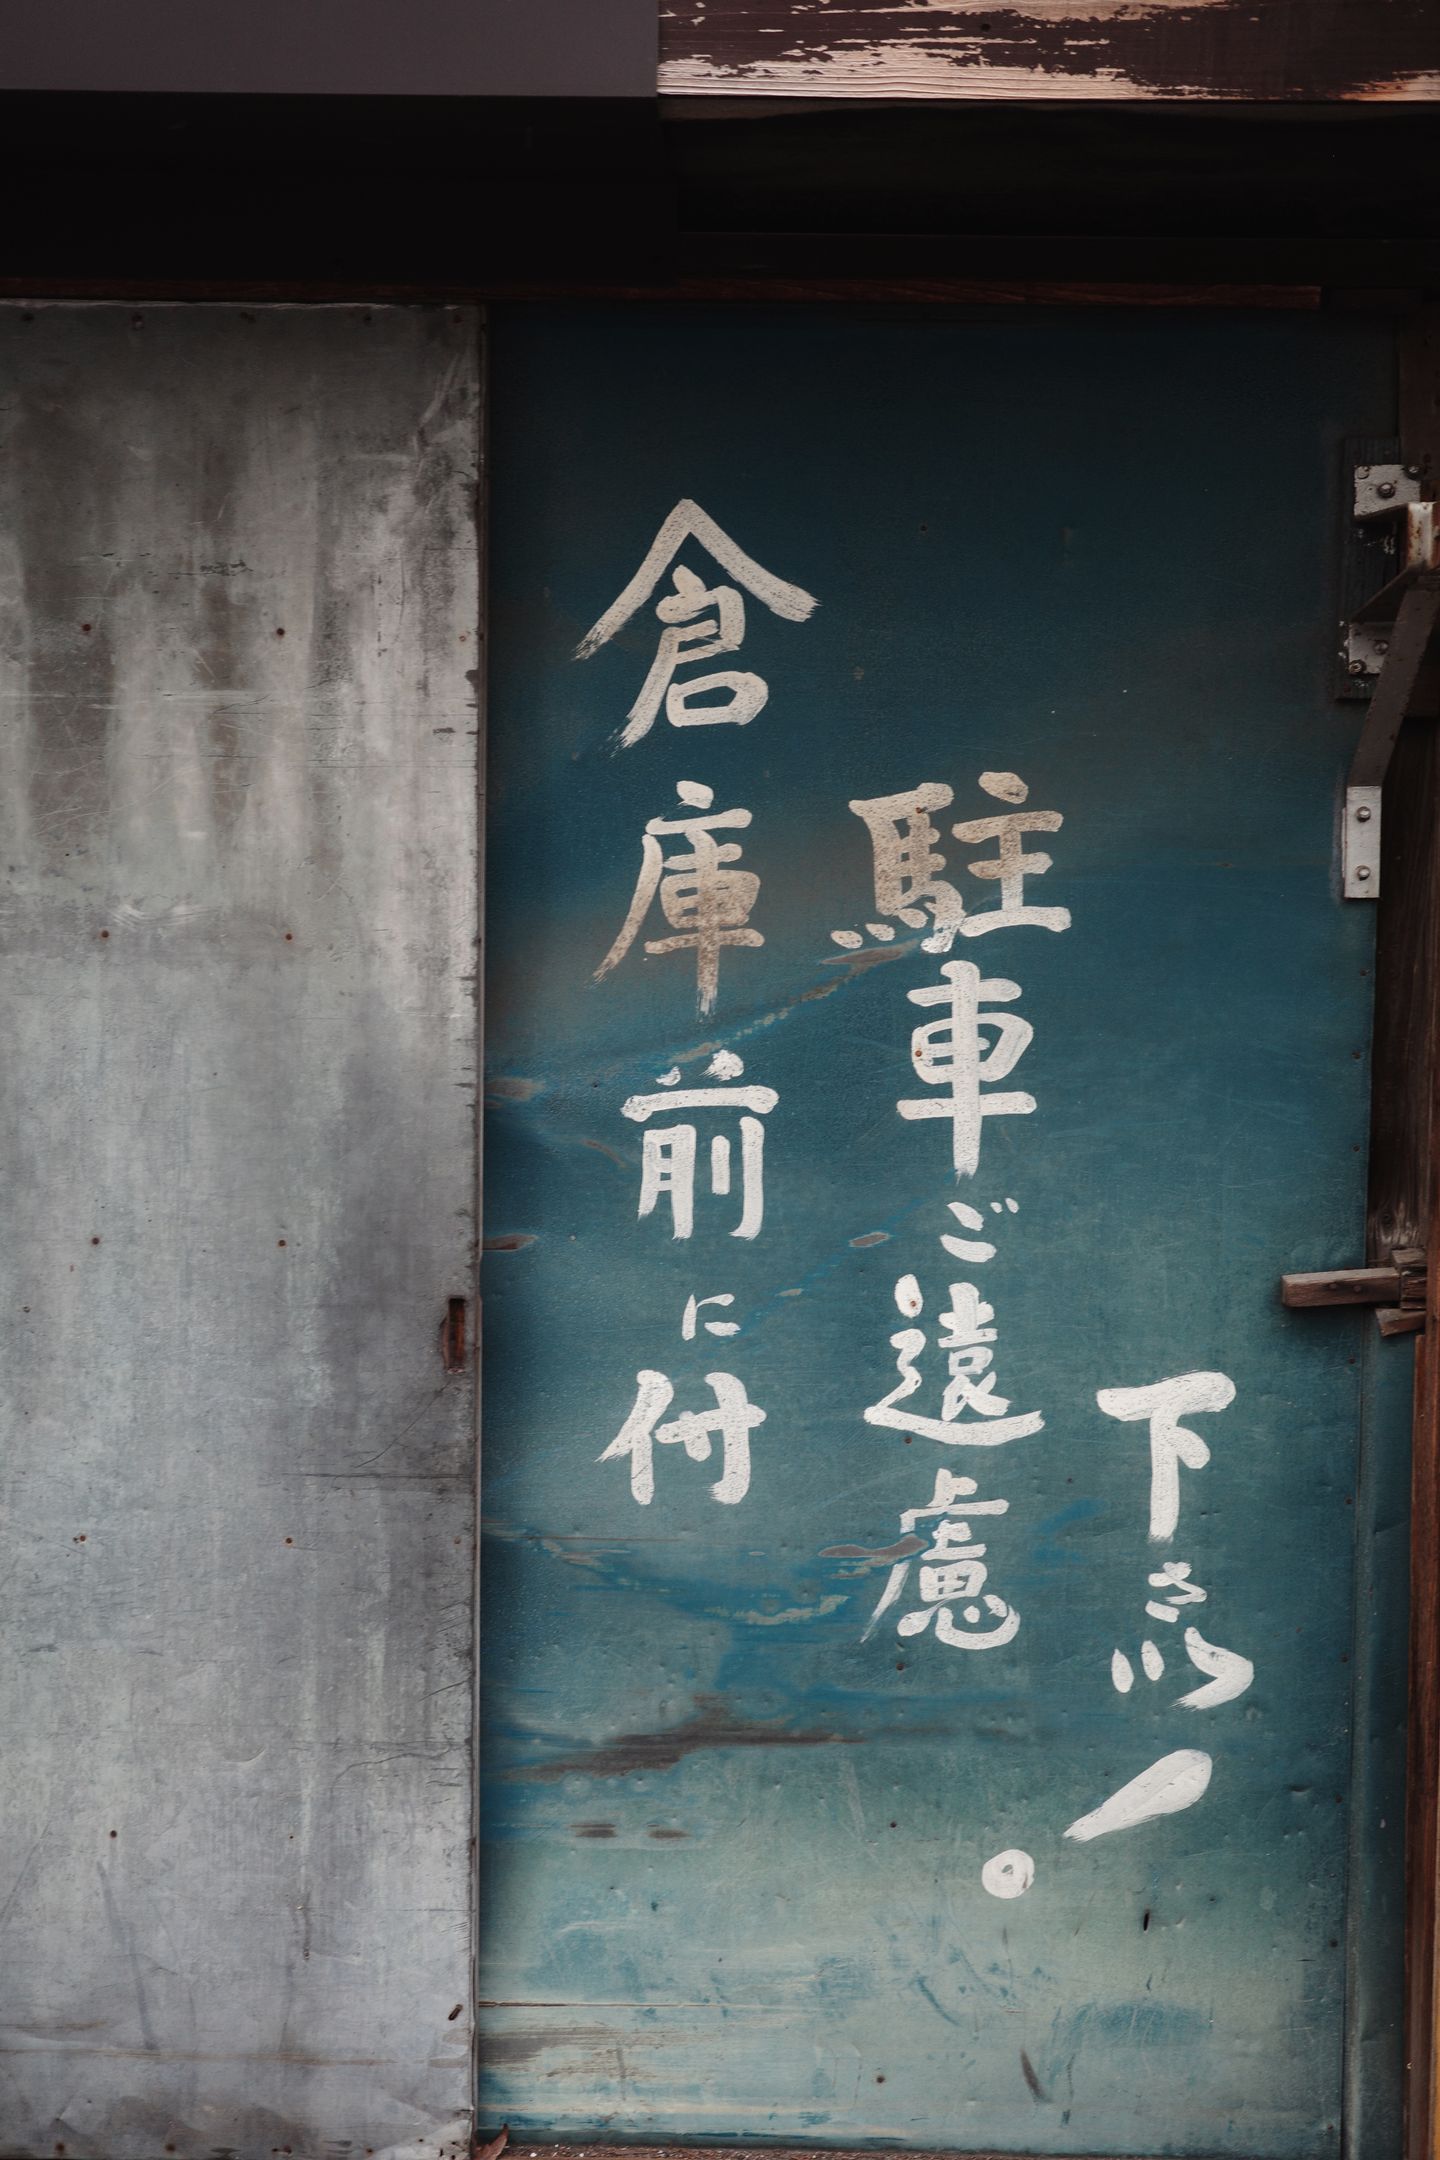 倉庫前に付
駐車ご遠慮
下さい！